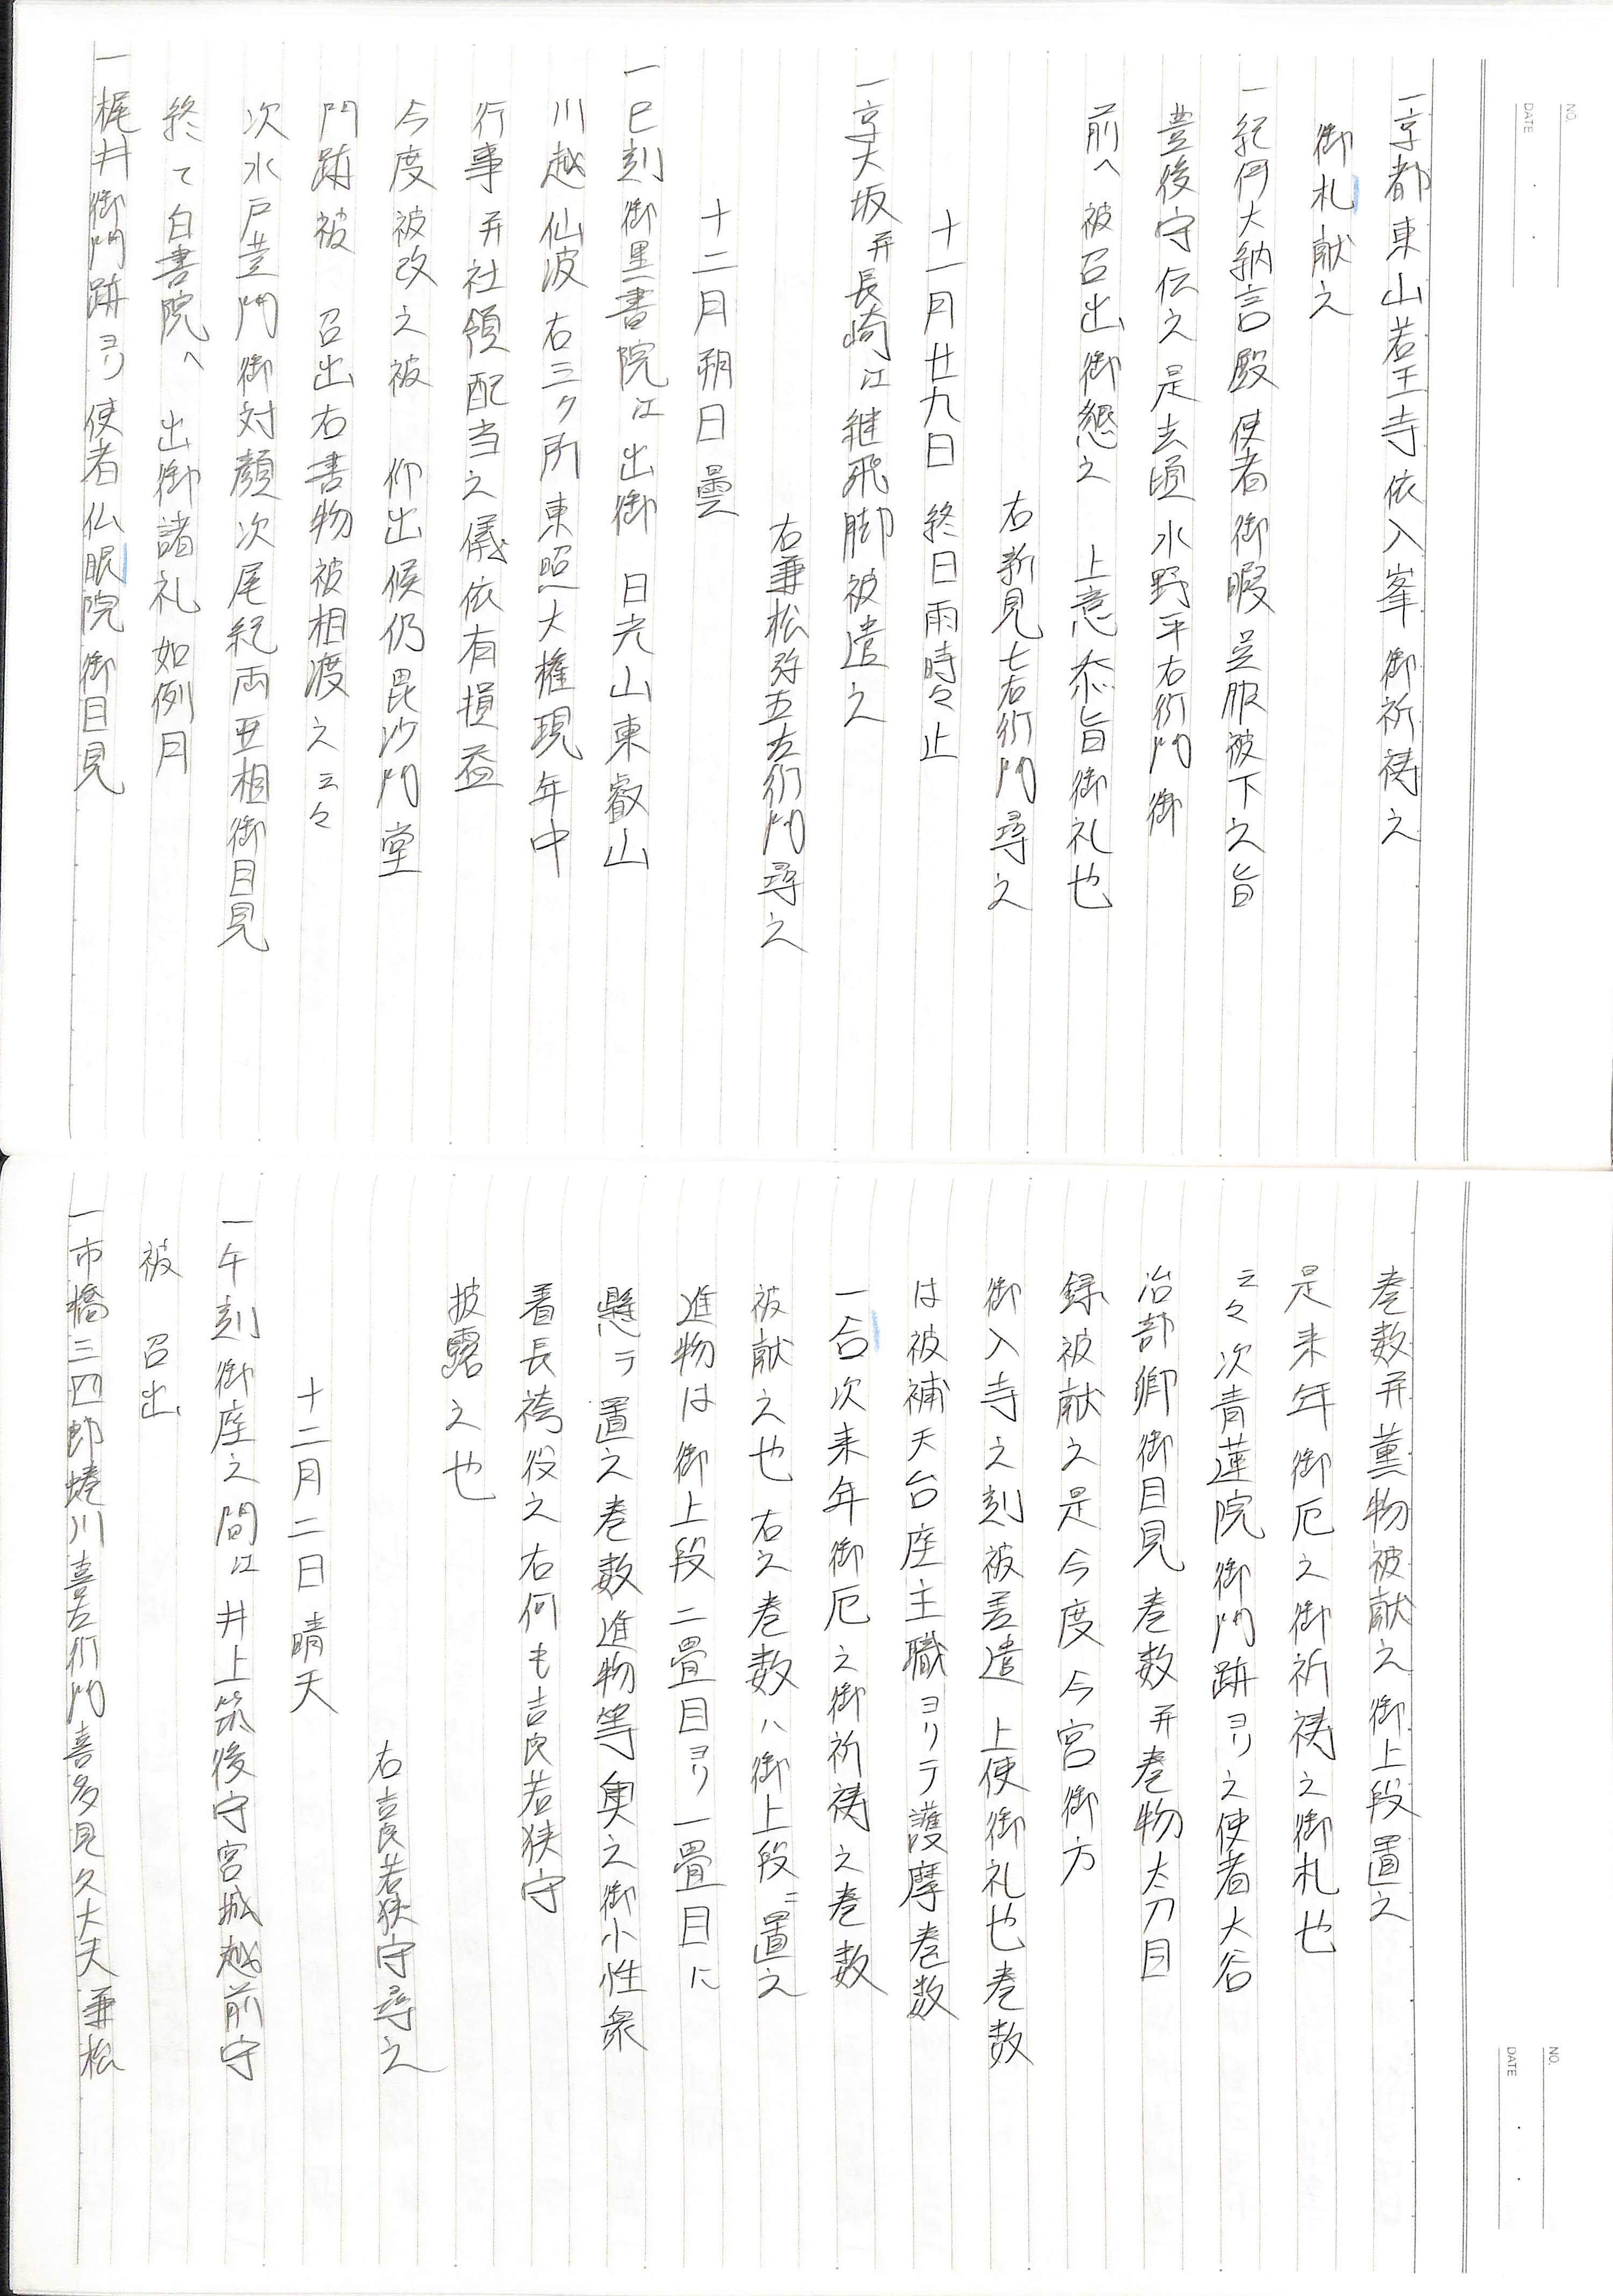 NO.
DATE
一京都東山若王寺依入峯御祈祷之
御札献之
一紀伊大納言殿使者御暇呉服被下之旨
豊後守伝之是去頃水野平右衛門御
前へ被召出御懇之　上意忝旨御礼也
右新見七右衛門尋之
十一月廿九日　終日雨時々止
一京大坂并長崎江継飛脚被遣之
右兼松弥五左衛門尋之
十二月朔日曇
一巳刻御黒書院江出御　日光山東叡山
川越仙波右三ケ所東照大権現年中
行事并社領配当之儀依有損益
今度被改之被　仰出候仍毘沙門堂
門跡被　召出右書物被相渡之云々
次水戸黄門御対顔次尾紀両亜相御目見
終て白書院へ　出御諸礼如例月
一梶井御門跡ヨリ使者仏眼院御目見
NO.
DATE
巻数并薫物被献之御上段置之
是来年御厄之御祈祷之御札也
云々次青蓮院御門跡ヨリ之使者大谷
治部卿御目見巻数并巻物太刀目
録被献之是今度今宮御方
御入寺之刻被差遣　上使御礼也巻数
は被補天台座主職ヨリテ護摩巻数
一合次来年御厄之御祈祷之巻数
被献之也右之巻数ハ御上段ニ置之
進物は御上段二畳目ヨリ一畳目に
懸テ置之巻数進物等奥之御小性衆
着長袴役之右何も吉良若狭守
披露之也
右吉良若狭守尋之
十二月二日晴天
一午刻御座之間江井上筑後守宮城越前守
被　召出
一市橋三四郎蜷川喜左衛門喜多見久大夫兼松